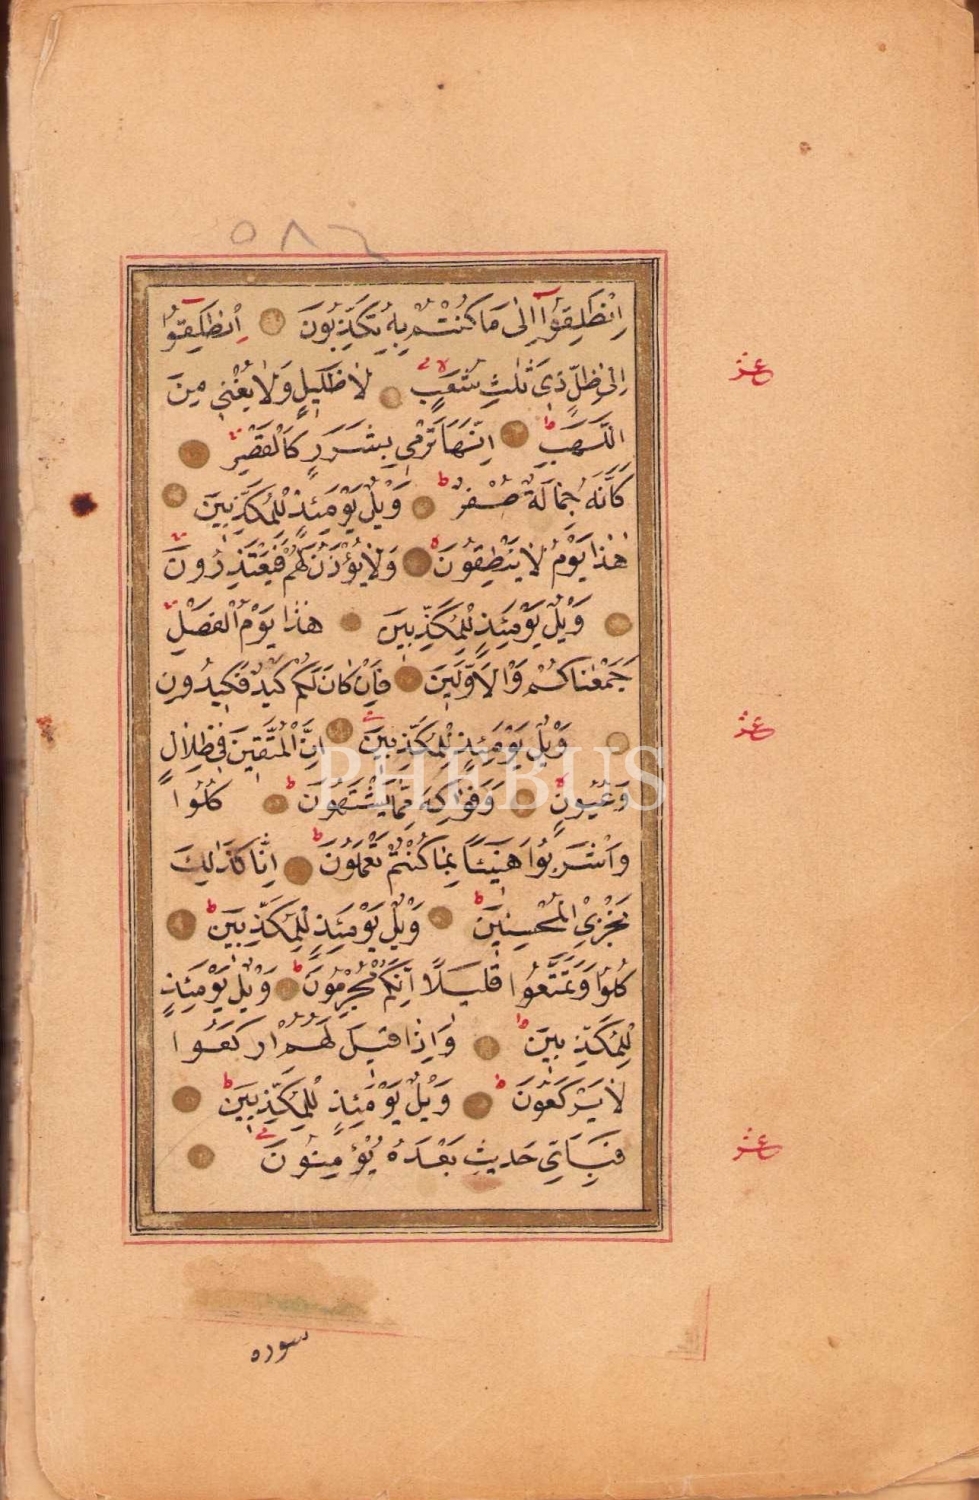 ٥٨٤
اِنْطَلِقُٓوا اِلٰى مَا كُنْتُمْ بِهٖ تُكَذِّبُونَ اِنْطَلِقُٓوا
اِلٰى ظِلٍّ ذٖى ثَلٰثِ شُعَبٍ لا لَا ظَلٖيلٍ وَلَا يُغْنٖى مِنَ
اللَّهَبِ ط اِنَّهَا تَرْمٖى بِشَرَرٍ كَالْقَصْرِ
كَاَنَّهُ جِمَالَةٌ صُفْرٌ ط وَيْلٌ يَوْمَئِذٍ لِلْمُكَذِّبٖينَ
هٰذَا يَوْمُ لَا يَنْطِقُونَ وَلَا يُؤْذَنُ لَهُمْ فَيَعْتَذِرُونَ
وَيْلٌ يَوْمَئِذٍ لِلْمُكَذِّبٖينَ هٰذَا يَوْمُ الْفَصْلِ
جَمَعْنَاكُمْ وَالْاَوَّلٖينَ فَاِنْ كَانَ لَكُمْ كَيْدٌ فَكٖيدُونِ
وَيْلٌ يَوْمَئِذٍ لِلْمُكَذِّبٖينَ اِنَّ الْمُتَّقٖينَ فٖى ظِلَالٍ
وَعُيُونٍ وَفَوَاكِهَ مِمَّا يَشْتَهُونَ ط كُلُوا
وَاشْرَبُوا هَنٖٓيـًٔا بِمَا كُنْتُمْ تَعْمَلُونَ ط اِنَّا كَذٰلِكَ
نَجْزِى الْمُحْسِنٖينَ ط وَيْلٌ يَوْمَئِذٍ لِلْمُكَذِّبٖينَ ط
كُلُوا وَتَمَتَّعُوا قَلٖيلًا اِنَّكُمْ مُجْرِمُونَ ط وَيْلٌ يَوْمَئِذٍ
لِلْمُكَذِّبٖينَ ط وَاِذَا قٖيلَ لَهُمُ ارْكَعُوا
لَا يَرْكَعُونَ ط وَيْلٌ يَوْمَئِذٍ لِلْمُكَذِّبٖينَ ط
فَبِاَىِّ حَدٖيثٍ بَعْدَهُ يُؤْمِنُونَ
عشر
عشر
عشر
سوره
PHEBUS